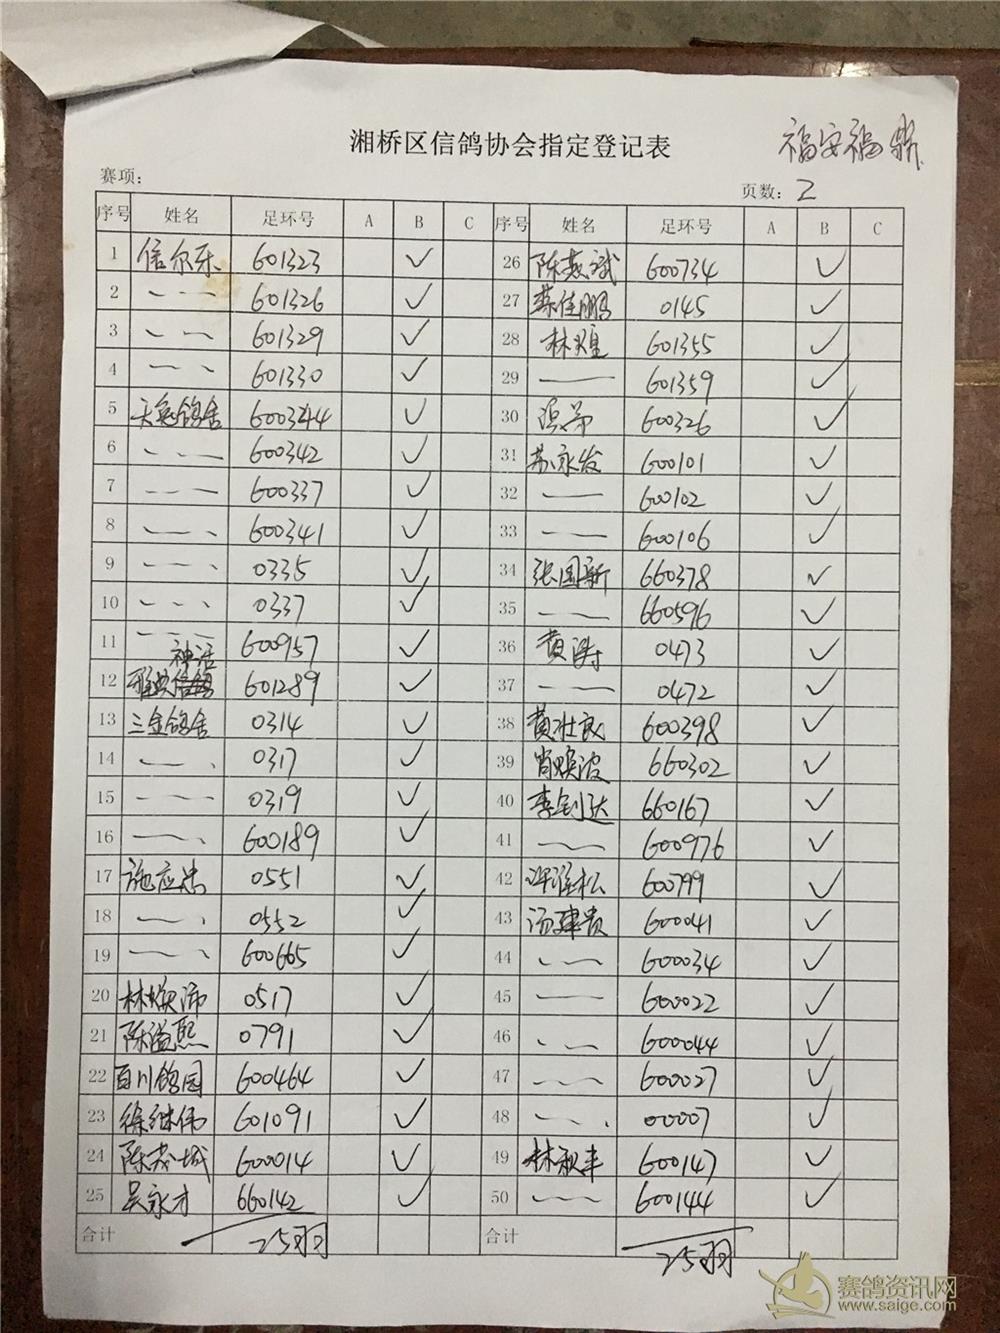 湘桥区信鸽协会指定登记表
福安福鼎
赛项:
页数: 2
序号 姓名 足环号 A B C 序号 姓名 足环号 A B C
1 信尔乐 601323 ✓ 26 陈燕斌 600734 ✓
2 〃 601326 ✓ 27 蔡佳鹏 0145 ✓
3 〃 601329 ✓ 28 林煌 601355 ✓
4 〃 601330 ✓ 29 〃 601359 ✓
5 天宠鸽舍 600344 ✓ 30 600326 ✓
6 〃 600342 ✓ 31 苏永发 600101 ✓
7 〃 600337 ✓ 32 〃 600102 ✓
8 〃 600341 ✓ 33 〃 600106 ✓
9 〃 0335 ✓ 34 张国新 660378 ✓
10 〃 0337 ✓ 35 〃 660596 ✓
11 〃 600957 ✓ 36 黄涛 0473 ✓
神话
12 雅典信鸽 601289 ✓ 37 〃 0472 ✓
13 三金鸽舍 0314 ✓ 38 黄壮良 600398 ✓
14 〃 0317 ✓ 39 肖焕波 660302 ✓
15 〃 0319 ✓ 40 李钊达 660167 ✓
16 〃 600189 ✓ 41 〃 600976 ✓
17 施应 0551 ✓ 42 松 600799 ✓
18 〃 0552 ✓ 43 汤建贵 600041 ✓
19 〃 600665 ✓ 44 〃 600034 ✓
20 林焕沛 0517 ✓ 45 〃 600022 ✓
21 陈溢熙 0791 ✓ 46 〃 600044 ✓
22 百川鸽园 600464 ✓ 47 〃 600027 ✓
23 徐继伟 601091 ✓ 48 〃 00007 ✓
24 陈茂城 600014 ✓ 49 林秋丰 600147 ✓
25 吴永才 660142 ✓ 50 〃 600144 ✓
合计 25羽 合计 25羽
赛鸽资讯网
www.saige.com